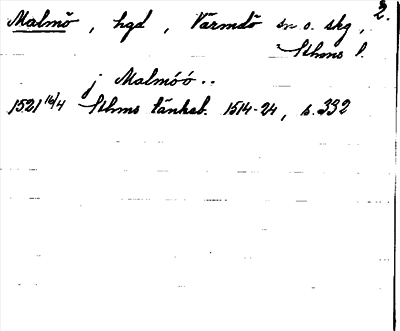 2.
Malmö, hgd, Värmdö sn o. skg,
Sthms l.
j Malmóó..
1521 16/4 Sthms tänkeb. 1514-24, s. 332